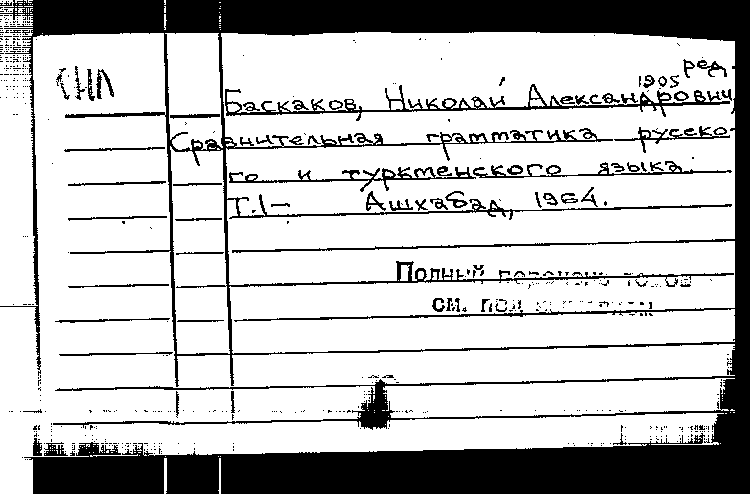 СНЛ
ред.
1905
Баскаков, Николай Александрович,
Сравнительная грамматика русско-
го и туркменского языка.
Т.1— Ашхабад, 1964.
Полный перечень томов
см. под